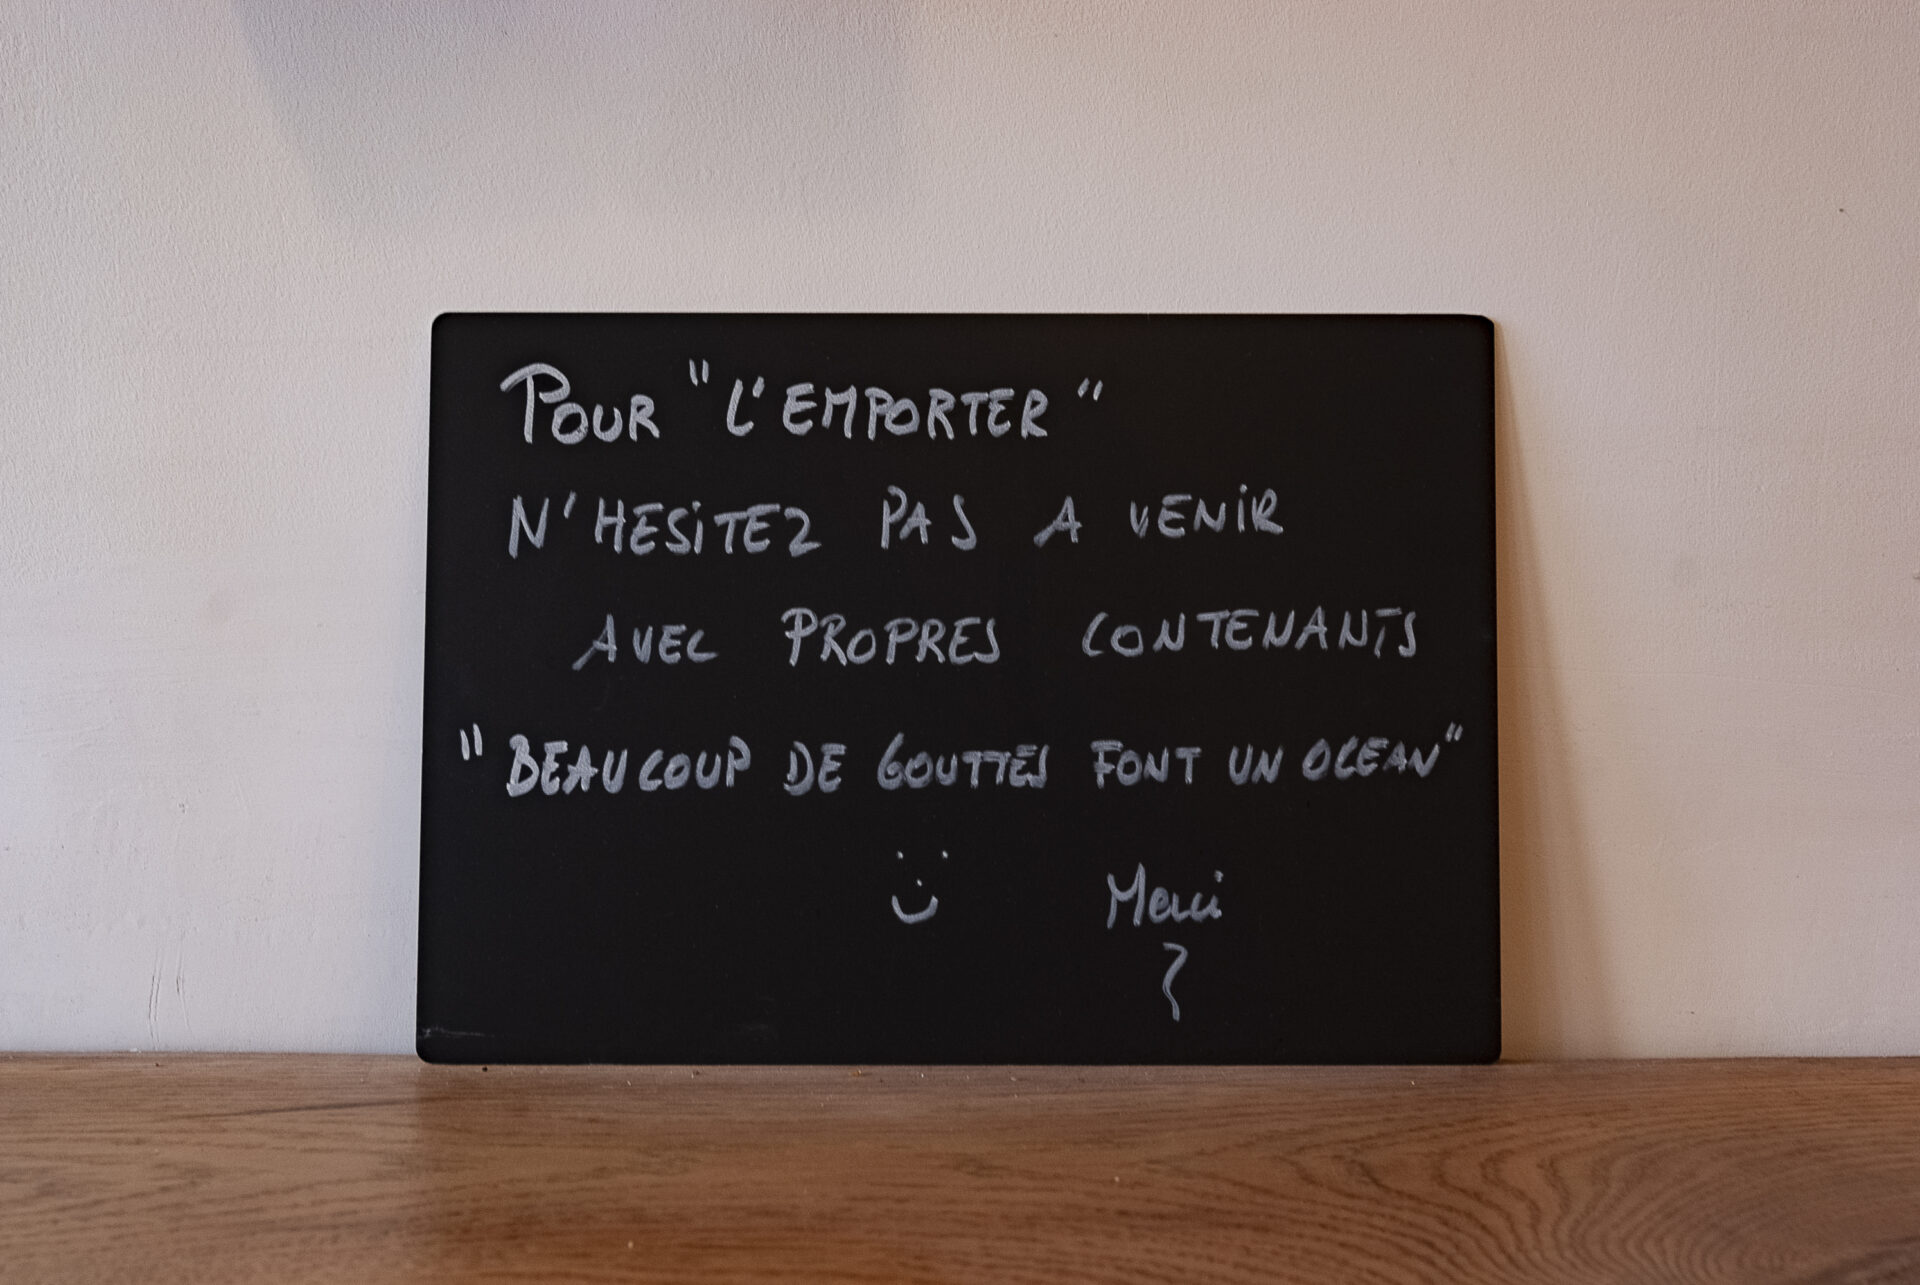 POUR "L'EMPORTER"
N'HESITEZ PAS A VENIR
AVEC PROPRES CONTENANTS
"BEAUCOUP DE GOUTTES FONT UN OCEAN"
Merci